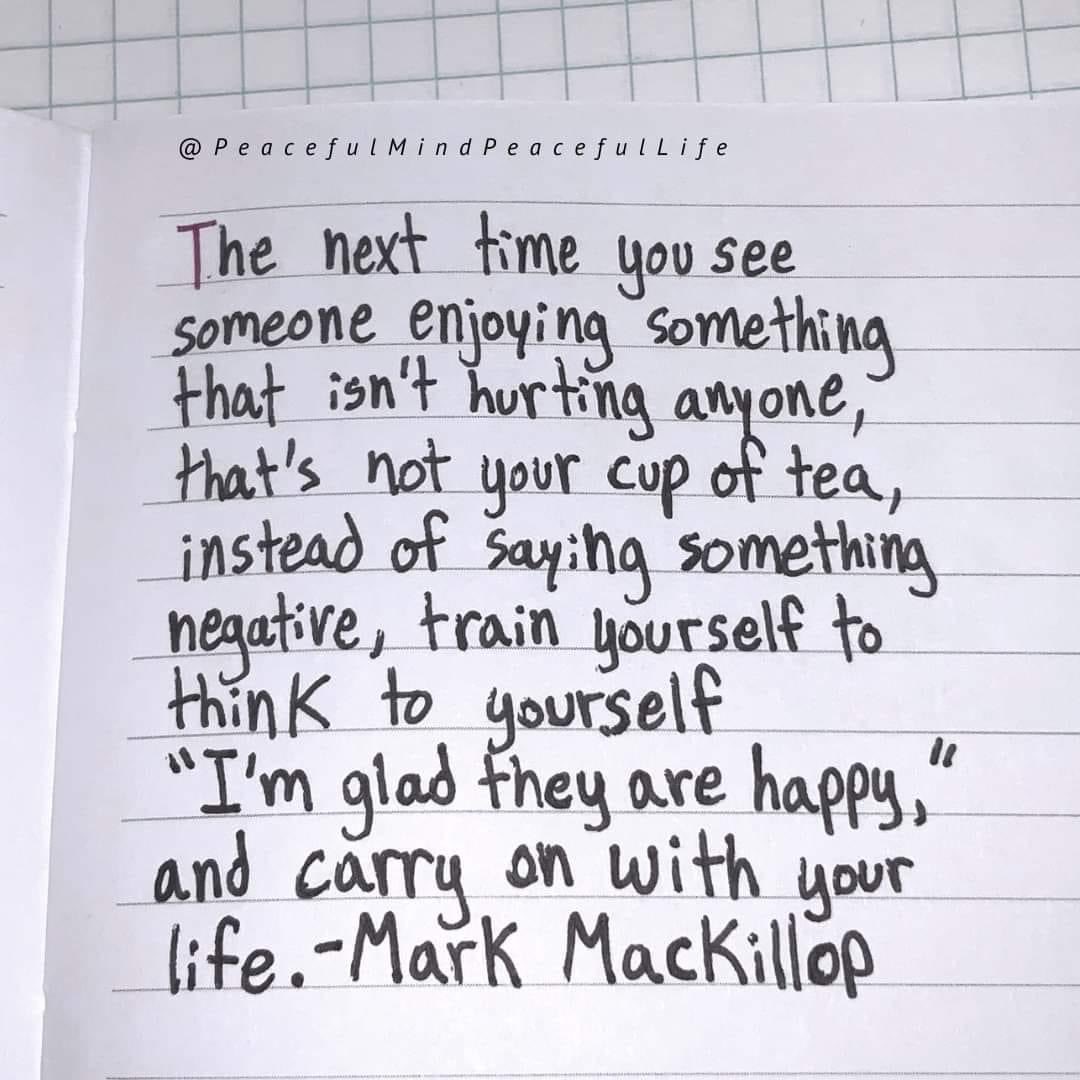 @PeacefulMindPeacefulLife
The next time you see
someone enjoying something
that isn't hurting anyone,
that's not your cup of tea,
instead of saying something
negative, train yourself to
think to yourself
"I'm glad they are happy,"
and carry on with your
life.-Mark MacKillop